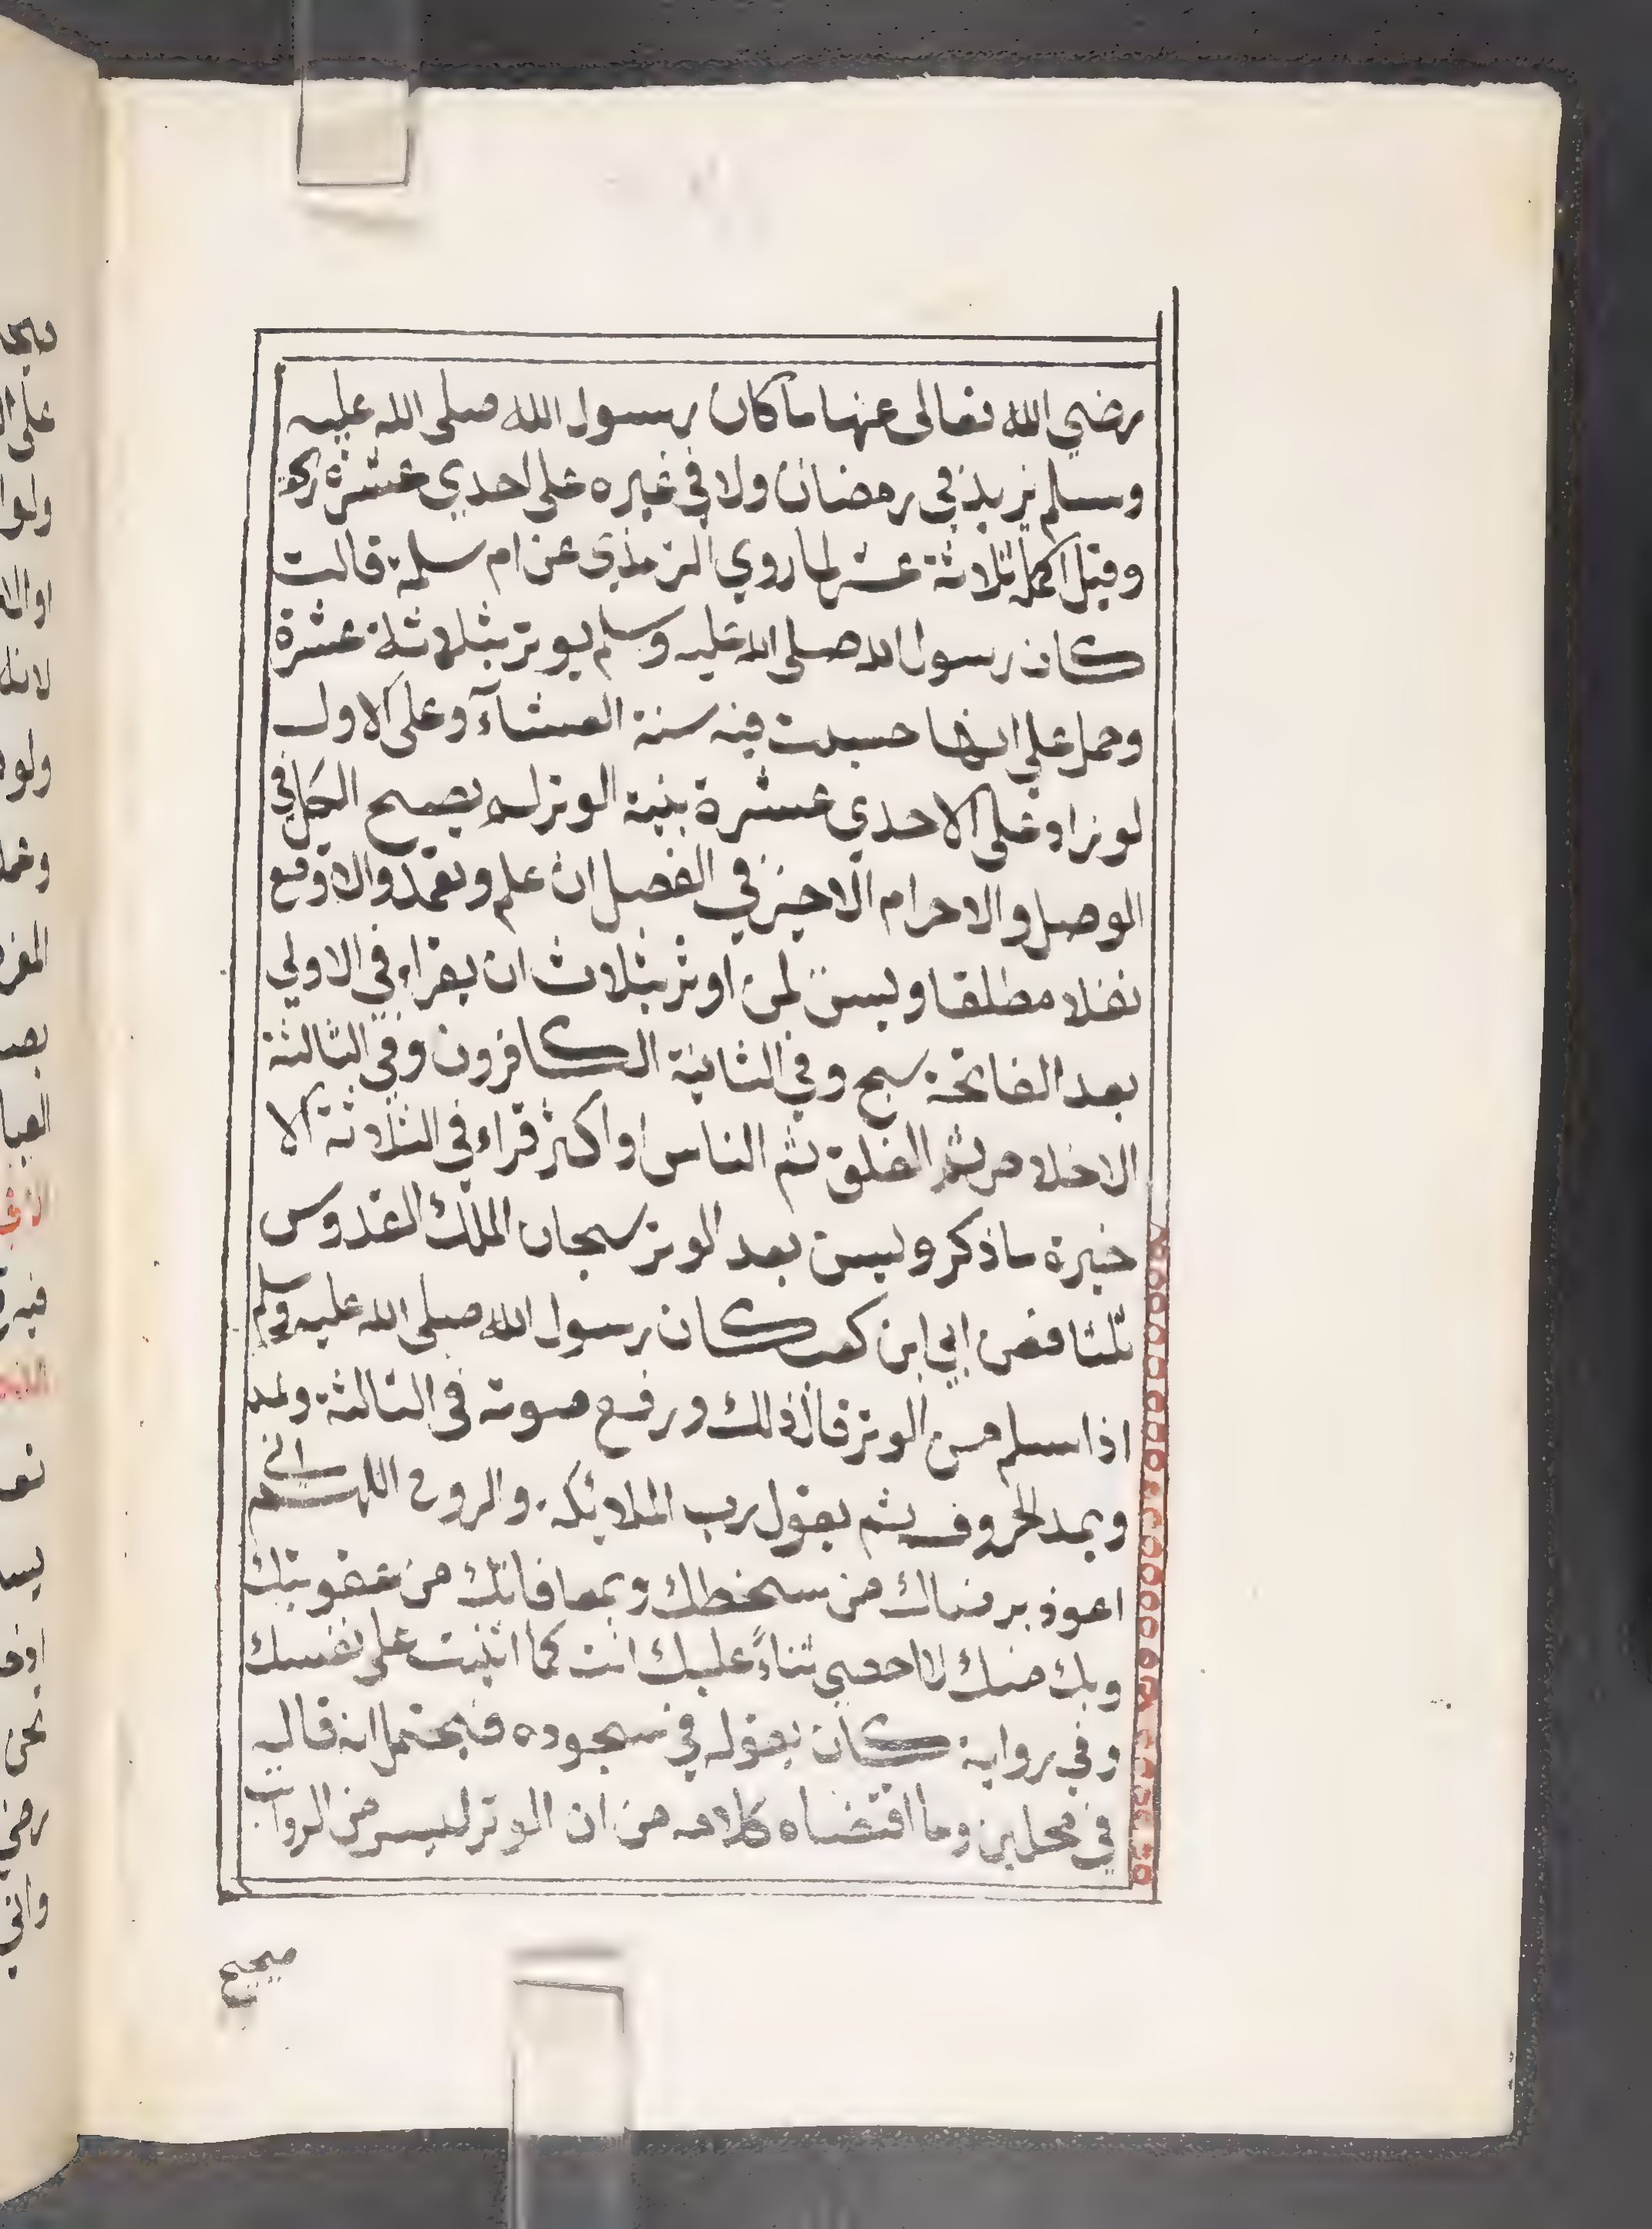 رضي الله تعالى عنها ما كان رسول الله صلى الله عليه
وسلم يزيد في رمضان ولا في غيره على احدي عشرة ركعة
وقيل اكمله ثلاثة عشر لما روي الترمذي عن ام سلمة قالت
كان رسول الله صلى الله عليه وسلم يوتر بثلاثة عشرة
وحمل علي انها حسبت فيه سنة العشآء وعلى الاول
لو زاد على الاحدي عشرة بنية الوتر لم يصح الكل في
الوصل والاحرام الاخير في الفصل ان علم وتعمد والا وقع
نفلا مطلقا ويسن لمن اوتر بثلاث ان يقراء في الاولي
بعد الفاتحة سبح وفي الثانية الكافرون وفي الثالثة
الاخلاص ثم الفلق ثم الناس او اكثر قراء في الثلاثة الا
خيرة ما ذكر ويسن بعد الوتر سبحان الملك القدوس
ثلثا فعن ابي ابن كعب كان رسول الله صلى الله عليه وسلم
اذا سلم من الوتر قال ذلك ورفع صوته في الثالثة
ويمد الحروف ثم يقول رب الملايكة والروح اللهم اني
اعوذ برضاك من سخطك وبمعافاتك من عقوبتك
وبك منك لا احصي ثناءً عليك انت كما اثنيت على نفسك
وفي رواية كان يقوله في سجوده فيحتمل انه قاله
في محلين وما اقتضاه كلامه من ان الوتر ليس من الرواتب
صحيح